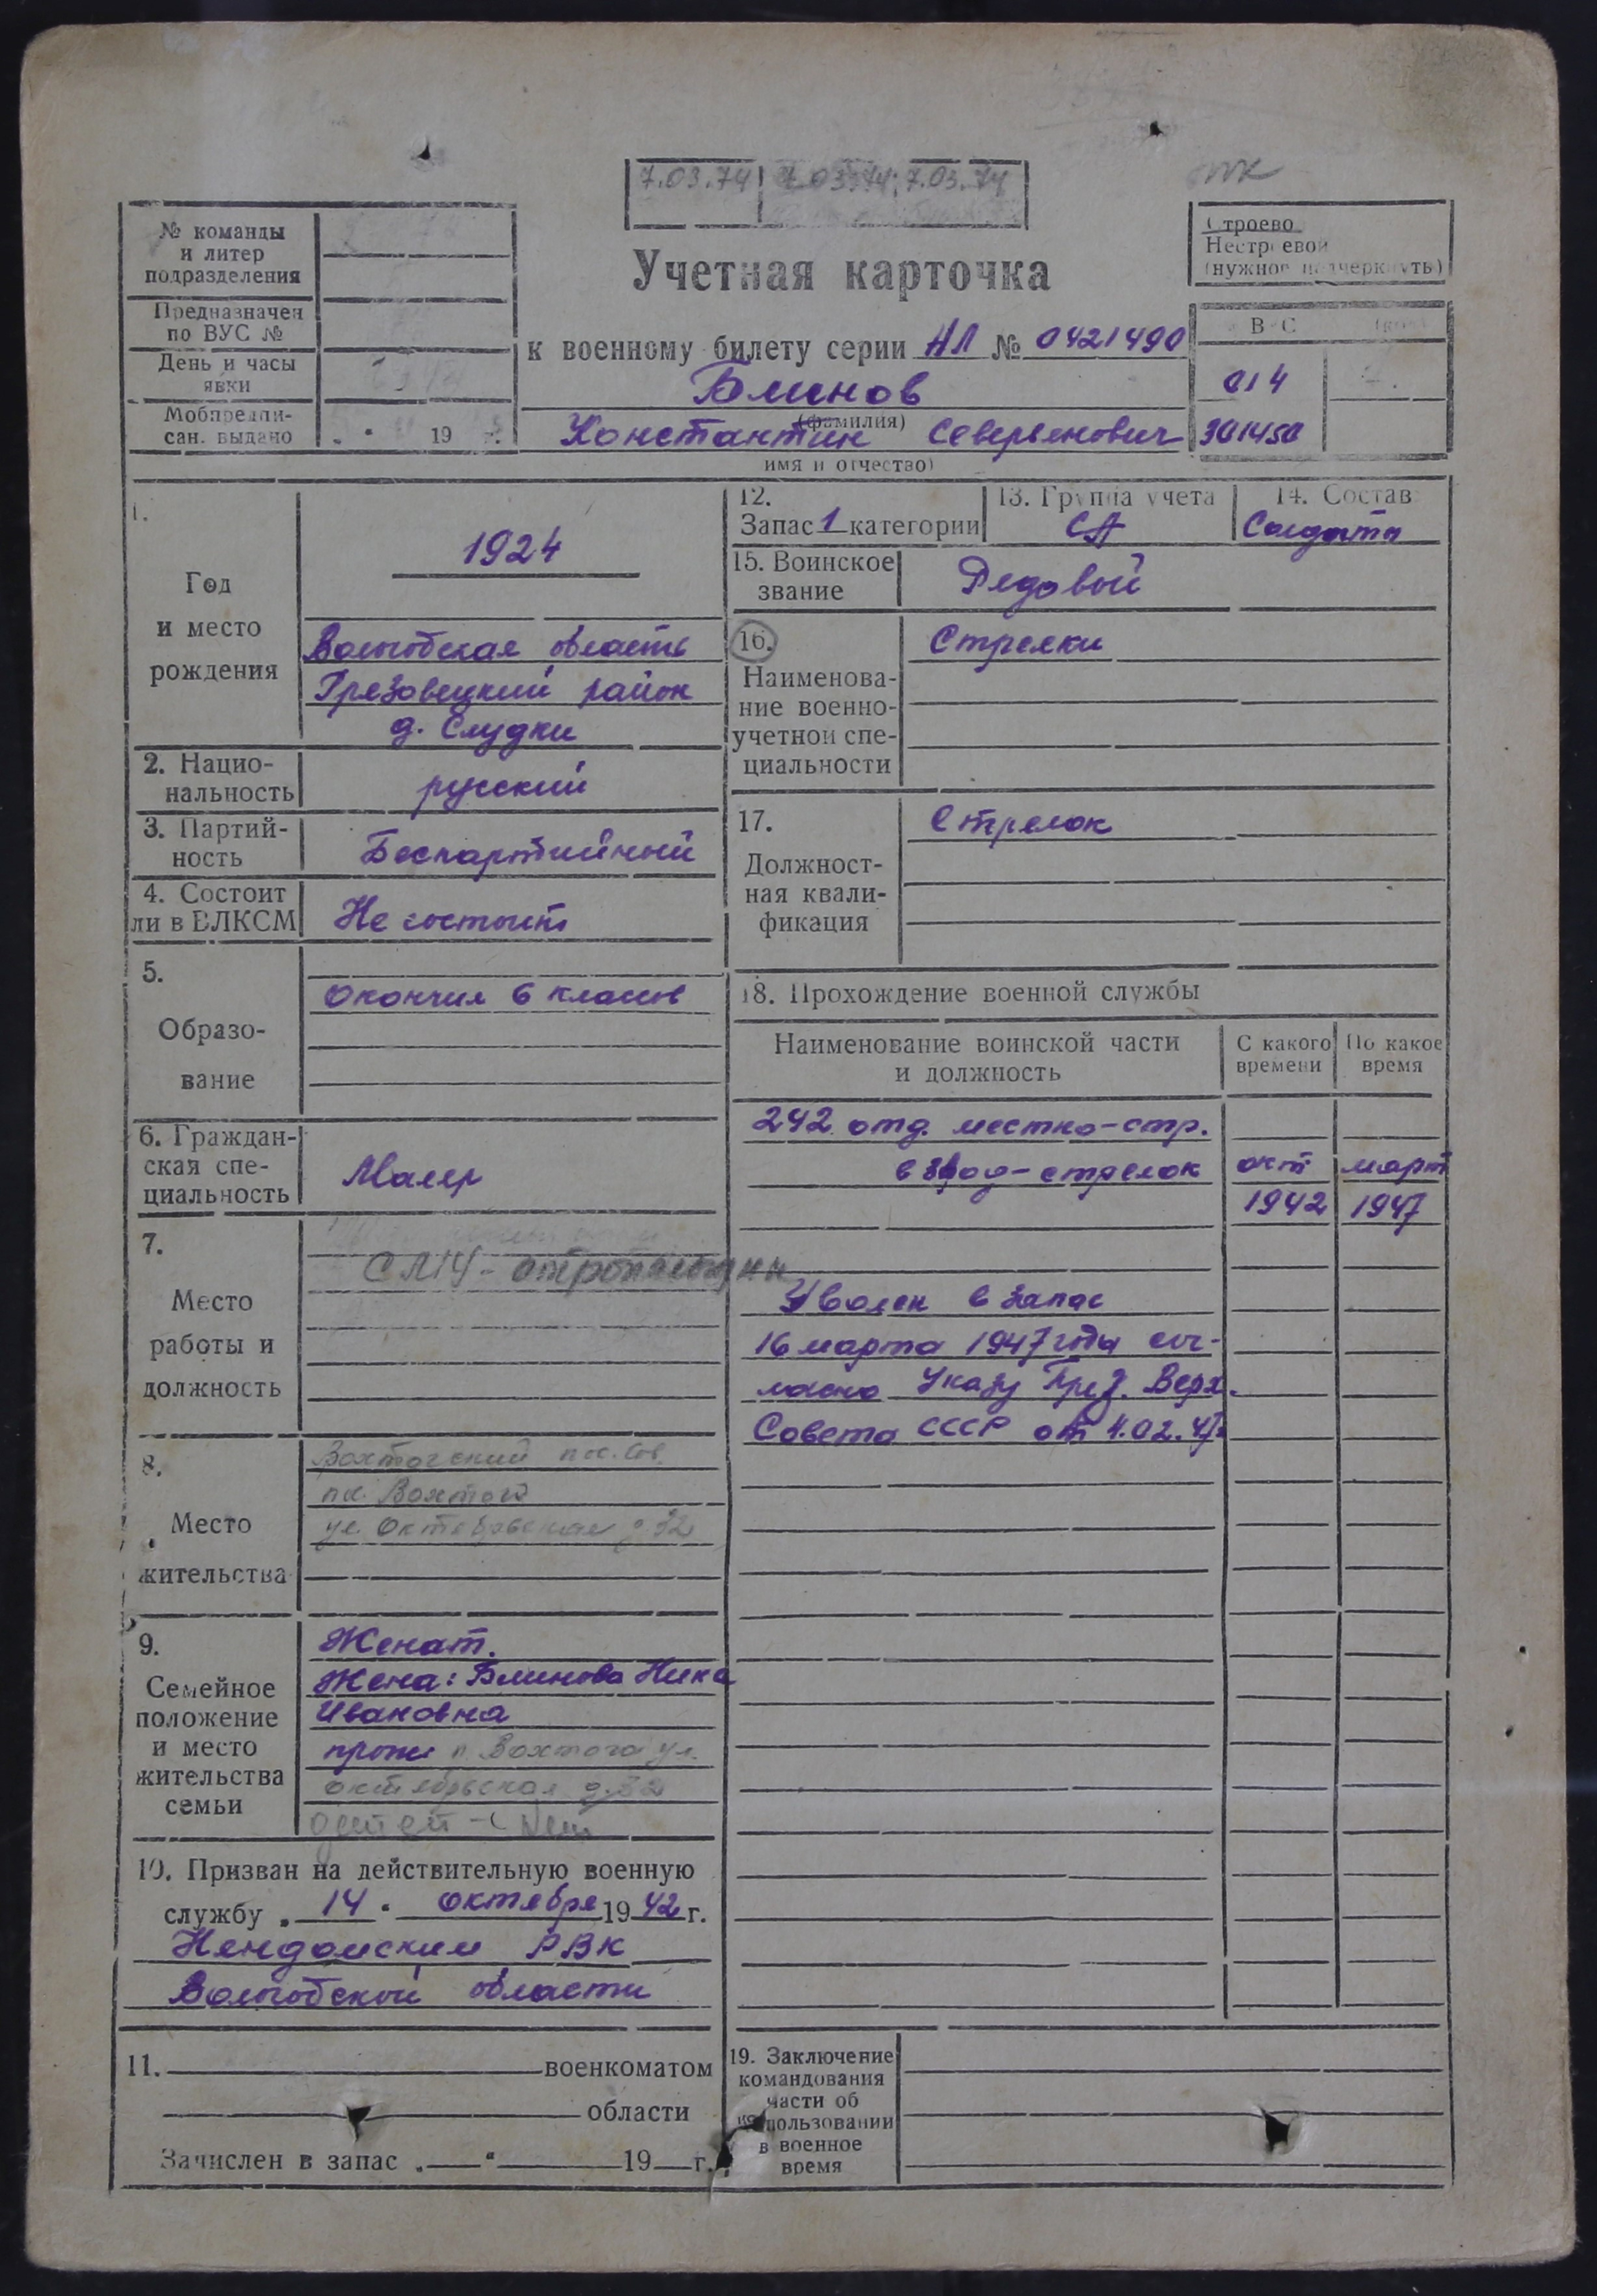 7.03.74 7.03.74 7.03.74
Строево
Нестроевой
(нужное подчеркнуть)
№ команды
и литер
подразделения
Предназначен
по ВУС №
День и часы
явки
Мобпредпи-
сан. выдано " " 19 г.
Учетная карточка
к военному билету серии НЛ № 0421490
Блинов
(фамилия)
Константин Северьянович
имя и отчество)
014
301450
1.
Год
и место
рождения
1924
Вологодская область
Грязовецкий район
д. Слудки
2. Нацио-
нальность
русский
3. Партий-
ность
Беспартийный
4. Состоит
ли в ВЛКСМ
Не состоит
5.
Образо-
вание
Окончил 6 классов
6. Граждан-
ская спе-
циальность
Маляр
7.
Место
работы и
должность
8.
Место
жительства
Вохтогский пос. Сов.
пос. Вохтога
ул. Октябрьская д. 32
9.
Семейное
положение
и место
жительства
семьи
Женат.
Жена: Блинова Нина
Ивановна
прож п. Вохтога ул.
октябрьская д. 32
детей - нет
10. Призван на действительную военную
службу " 14 " октября 1942 г.
Няндомским РВК
Вологодской области
11. военкоматом
области
Зачислен в запас " " 19 г.
12.
Запас 1 категории
13. Группа учета
СА
14. Состав
Солдаты
15. Воинское
звание
Рядовой
16.
Наименова-
ние военно-
учетной спе-
циальности
Стрелки
17.
Должност-
ная квали-
фикация
Стрелок
18. Прохождение военной службы
Наименование воинской части
и должность
С какого
времени
По какое
время
242 отд. местно-стр.
взвод - стрелок окт март
1942 1947
Уволен в запас
16 марта 1947 года сог-
ласно Указу През. Верх.
Совета СССР от 4.02.47г
19. Заключение
командования
части об
использовании
в военное
время